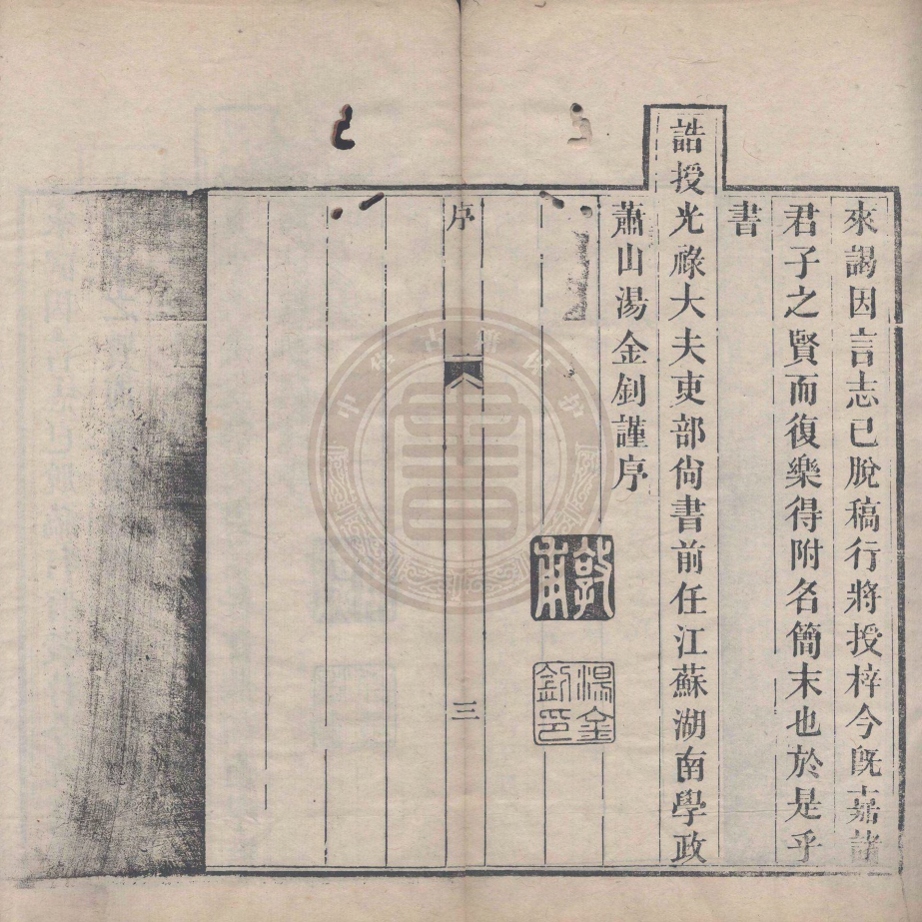 來謁因言志已脫稿行將授梓今旣嘉諸
君子之賢而復樂得附名簡末也於是乎
書
誥授光祿大夫吏部尙書前任江蘇湖南學政
蕭山湯金釗謹序
敦甫
湯金釗印
序
三